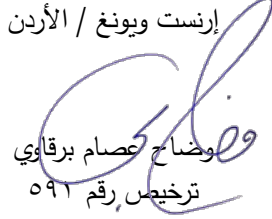 إرنست ويونغ / الأردن
وضاح عصام برقاوي
ترخيص رقم ٥٩١